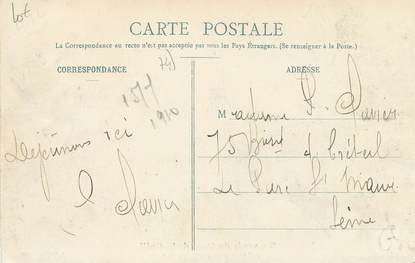 Lot
CARTE POSTALE
La Correspondance au recto n'est pas acceptée par tous les Pays Étrangers. (Se renseigner à la Poste.)
CORRESPONDANCE
ADRESSE
15/7
1910
Déjeunons ici
Madame
75 de Créteil
Le Parc St Maur
Seine